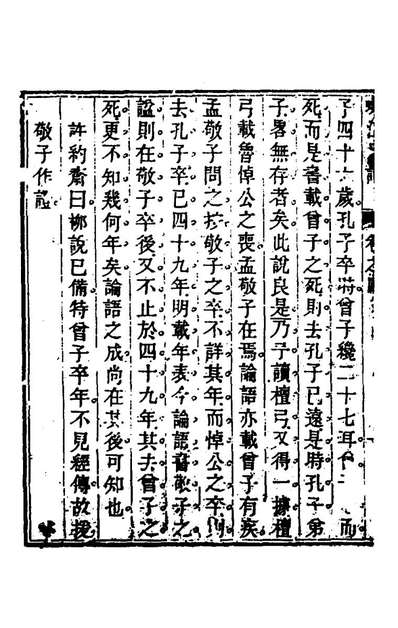 子四十六歲孔子卒時曾子纔二十七耳而
死而是書載曾子之死則去孔子已遠是時孔子弟
子畧無存者矣此說良是乃予讀檀弓又得一據檀
弓載魯悼公之喪孟敬子在焉論語亦載曾子有疾
孟敬子問之按敬子之卒不詳其年而悼公之卒則
去孔子卒已四十九年明載年表今論語書敬子之
諡則在敬子卒後又不止於四十九年其去曾子之
死更不知幾何年矣論語之成尚在其後可知也
許約齋曰柳說已備特曾子卒年不見經傳故援
敬子作證